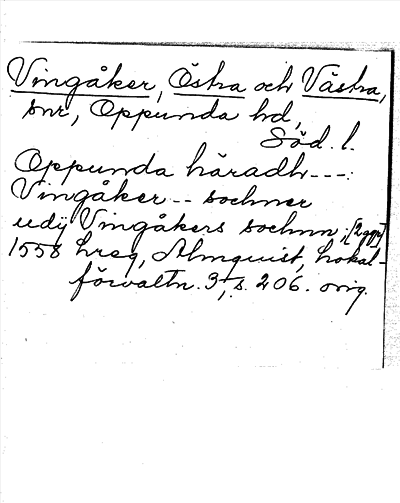 Vingåker, Östra och Västra,
snr, Oppunda hd,
Söd. l.
Oppunda häradh ---:
Vingåker -- sochner
udij Vingåkers sochnn; [2 ggr]
1558 hreg, Almquist, Lokal-
förvaltn. 3, s. 206. orig.